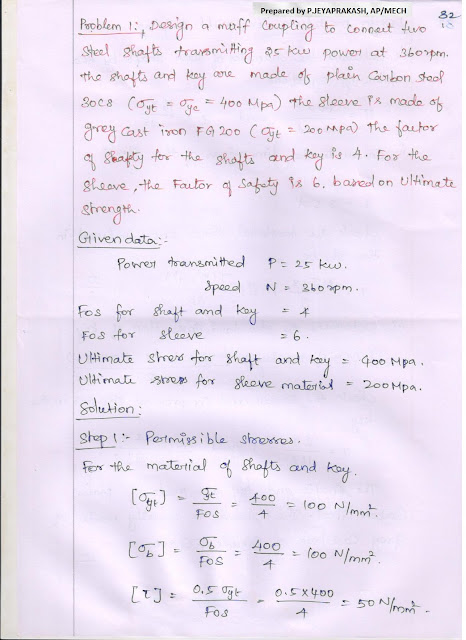 Prepared by P.JEYAPRAKASH, AP/MECH
32
Problem 1:, Design a muff Coupling to connect two
Steel Shafts transmitting 25 kw power at 360 rpm.
the shafts and key are made of plain Carbon steel
30C8 (σyt = σyc = 400 Mpa) the sleeve is made of
grey cast iron FG 200 (σyt = 200 MPa) the factor
of Shafty for the shafts and key is 4. For the
Sheeve, the Factor of Safety is 6. based on Ultimate
Strength.
Given data:-
Power transmitted P = 25 kw.
Speed N = 360 rpm.
FOS for shaft and key = 4
FOS for sleeve = 6.
Ultimate stress for shaft and key = 400 Mpa.
Ultimate stress for sleeve material = 200 Mpa.
Solution:
Step 1:- Permissible stresses.
For the material of Shafts and key.
[σyt] = σt/FOS = 400/4 = 100 N/mm².
[σb] = σb/FOS = 400/4 = 100 N/mm².
[τ] = 0.5 σyt/FOS = 0.5×400/4 = 50 N/mm².